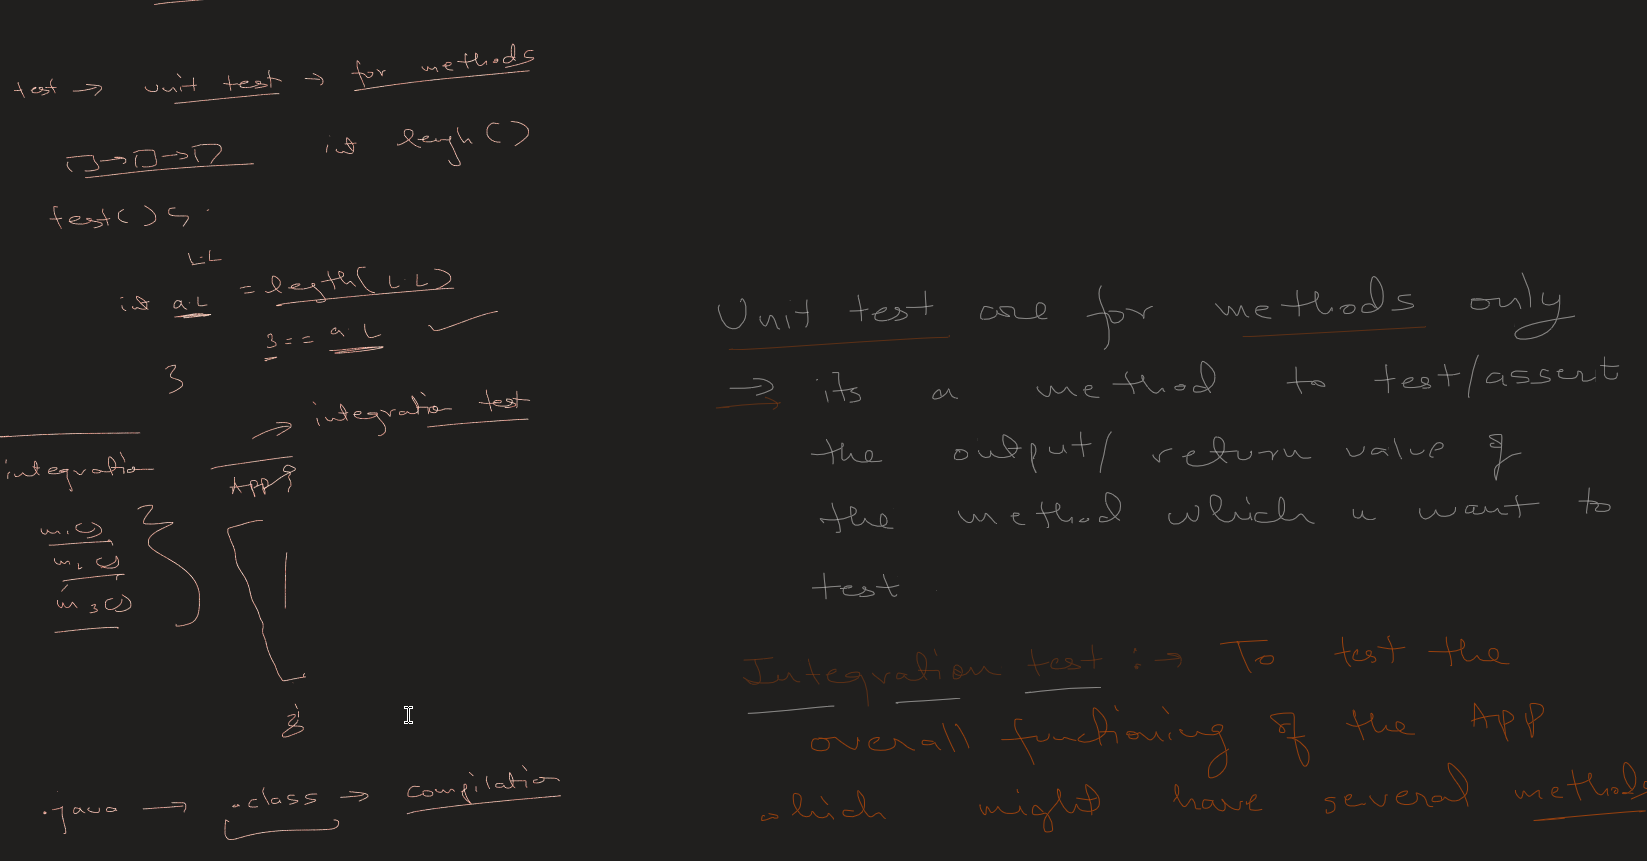 test → unit test → for methods
int lengh()
test() {
L.L
int a.L = legth(L.L)
3 == a.L
}
→ integration test
integratio
App
m1()
m2()
m3()
.java → .class → compilation
Unit test are for methods only
→ its a method to test/assert
the output/ return value of
the method which u want to
test
Integration test :→ To test the
overall functioning of the App
which might have several methods